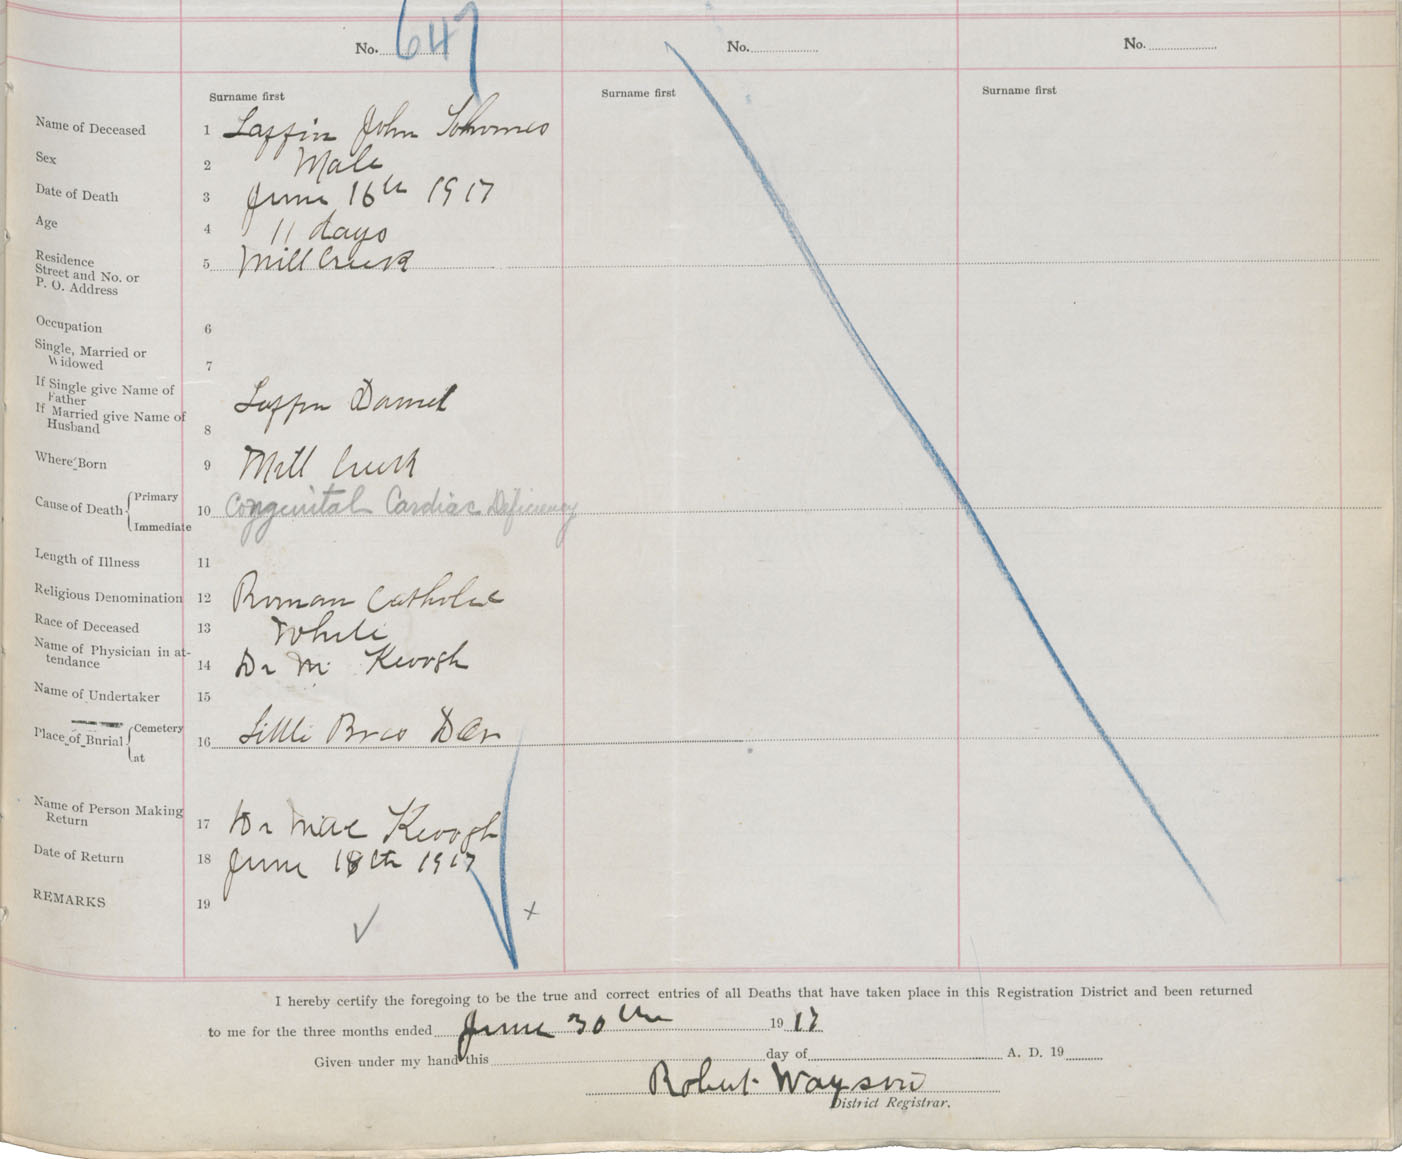 No. 647
No.
No.
Surname first
Surname first
Surname first
Name of Deceased 1 Laffin John Thomas
Sex 2 Male
Date of Death 3 June 16th 1917
Age 4 11 days
Residence
Street and No. or
P. O. Address
5 Mill Creek
Occupation 6
Single, Married or
Widowed
7
If Single give Name of
Father
If Married give Name of
Husband
8 Laffin Daniel
Where Born 9 Mill Creek
Cause of Death { Primary
Immediate
10 Congenital Cardiac Deficiency
Length of Illness 11
Religious Denomination 12 Roman Catholic
Race of Deceased 13 White
Name of Physician in at-
tendance
14 Dr M Keough
Name of Undertaker 15
Place of Burial { Cemetery
at
16 Little Bras Dor
Name of Person Making
Return
17 Dr Keough
Date of Return 18 June 18th 1917
REMARKS 19
I hereby certify the foregoing to be the true and correct entries of all Deaths that have taken place in this Registration District and been returned
to me for the three months ended June 30th 1917
Given under my hand this day of A. D. 19
Robert
District Registrar.